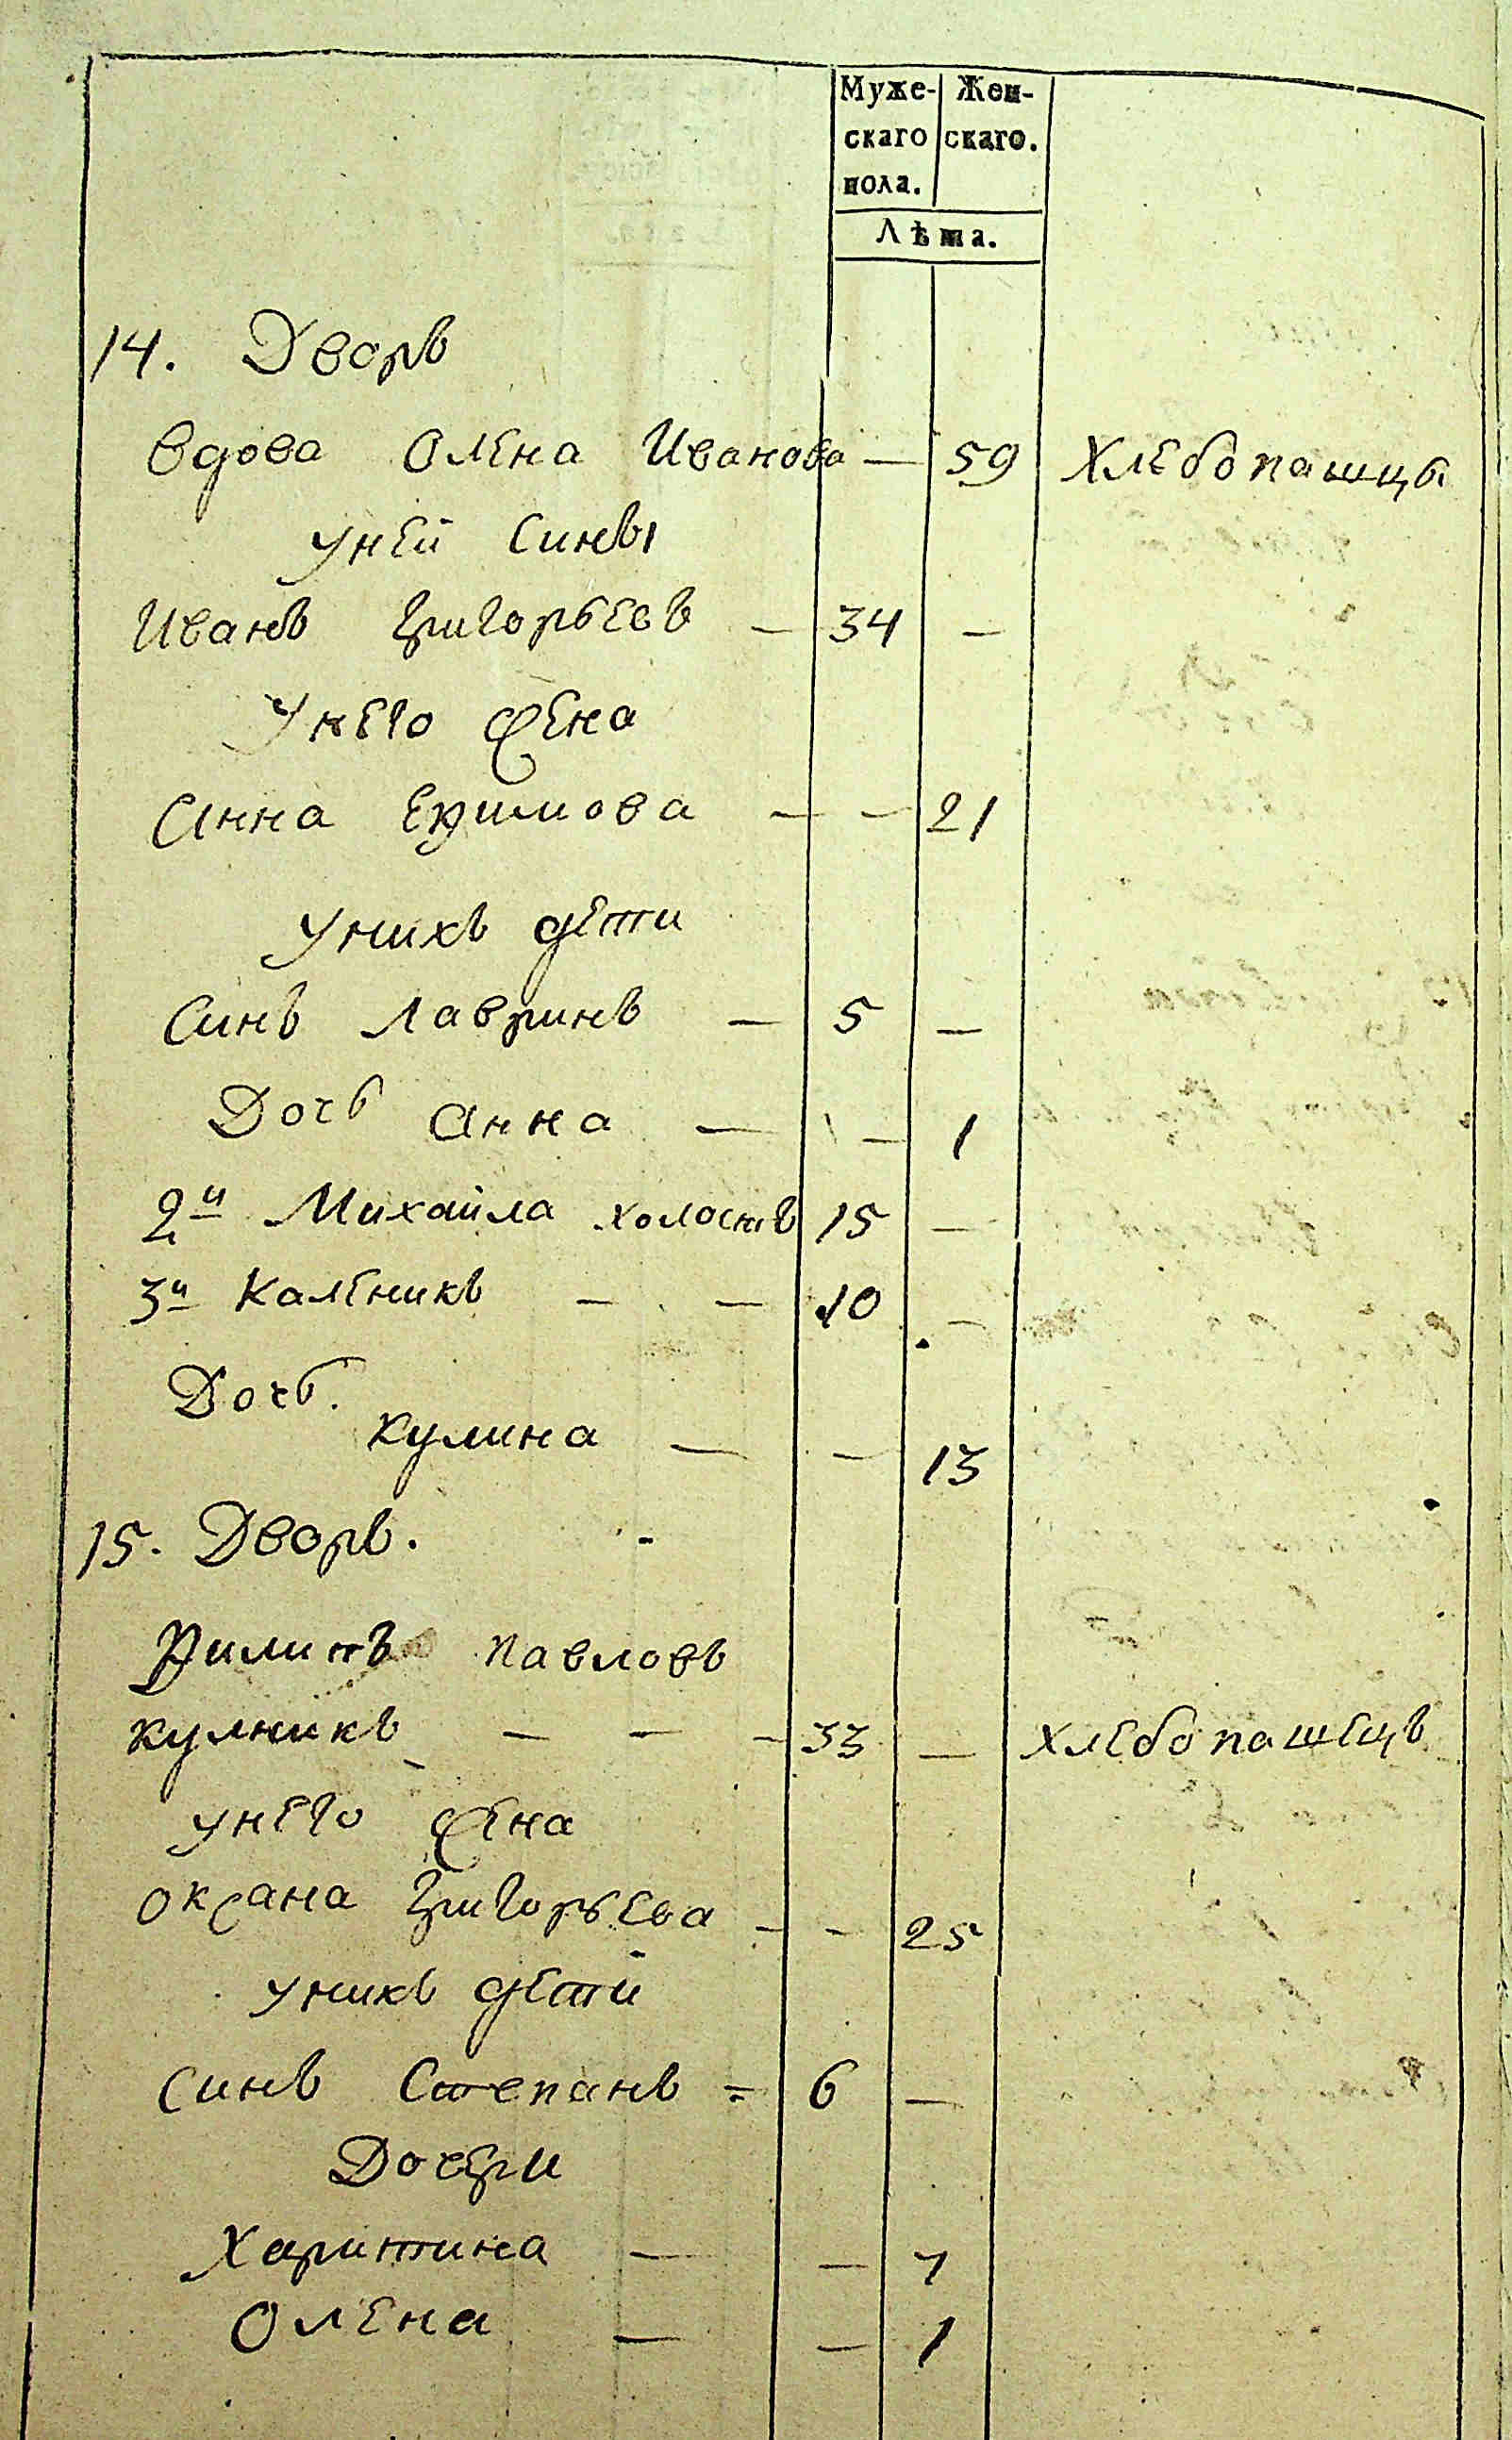 Муже- Жен-
скаго скаго.
пола.
Лѣта.
14. Дворъ
вдова Олена Иванова — 59 Хлебопашцы
унеи синъı
Иванъ Григорьевъ — 34 —
Унего жена
Анна Ефимова — — 21
Унихъ дети
Синъ Лавринъ — 5 —
Дочь Анна — — 1
2й Михайла холостъ 15 —
3й Каленикъ — — 10 —
Дочь.
Кулина — — 13
15. Дворъ.
Филипъ Павловъ
Кулникъ — — — 33 — Хлебопашецъ
унего жена
Оксана Григорьева — — 25
унихъ дети
синъ Степанъ = 6 —
Дочери
Харитина — — 7
Олена — — 1